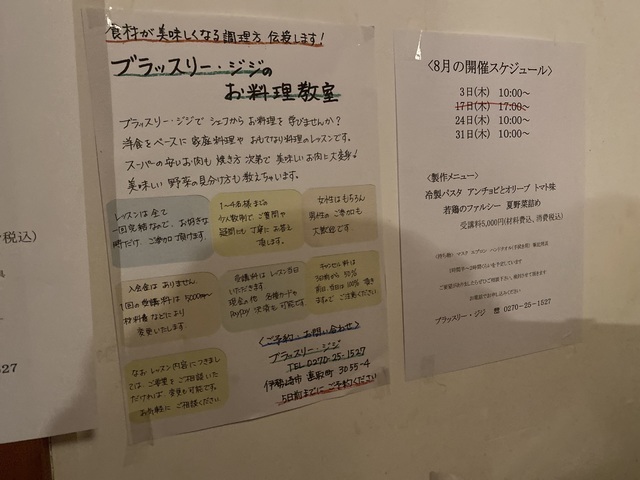 食材が美味しくなる調理方、伝授します!
ブラッスリー・ジジの
お料理教室
ブラッスリー・ジジで シェフから お料理を 学びませんか?
洋食をベースに 家庭料理や おもてなし料理のレッスンです。
スーパーの安いお肉も 焼き方 次第で 美味しいお肉に大変身!
美味しい 野菜の見分け方も 教えちゃいます。
レッスンは全て
一回完結なので、お好きな
時だけ、ご参加頂けます。
1~4名様までの
少人数制で、ご質問や
疑問にも 丁寧に お答え
致します。
女性はもちろん
男性の ご参加も
大歓迎です
入会金は ありません。
1回の受講料は 5000円~
材料費などにより
変更いたします。
受講料は レッスン当日
いただきます
現金の他 各種カードや
PayPay 決済も 可能です。
キャンセル料は
3日前から 50%
前日、当日は 100% 頂き
ますので ご注意ください
なお レッスン内容に つきまし
ては、ご希望を ご相談いた
だければ、変更も可能です。
お気軽に ご相談ください
〈ご予約・お問い合わせ〉
ブラッスリー・ジジ
TEL 0270-25-1527
伊勢崎市 連取町 3055-4
5日前までに ご予約ください
〈8月の開催スケジュール〉
3日(木) 10:00~
17日(木) 17:00~
24日(木) 10:00~
31日(木) 10:00~
〈製作メニュー〉
冷製パスタ アンチョビとオリーブ トマト味
若鶏のファルシー 夏野菜詰め
受講料5,000円(材料費込、消費税込)
ブラッスリー・ジジ ☎ 0270-25-1527
税込)
527